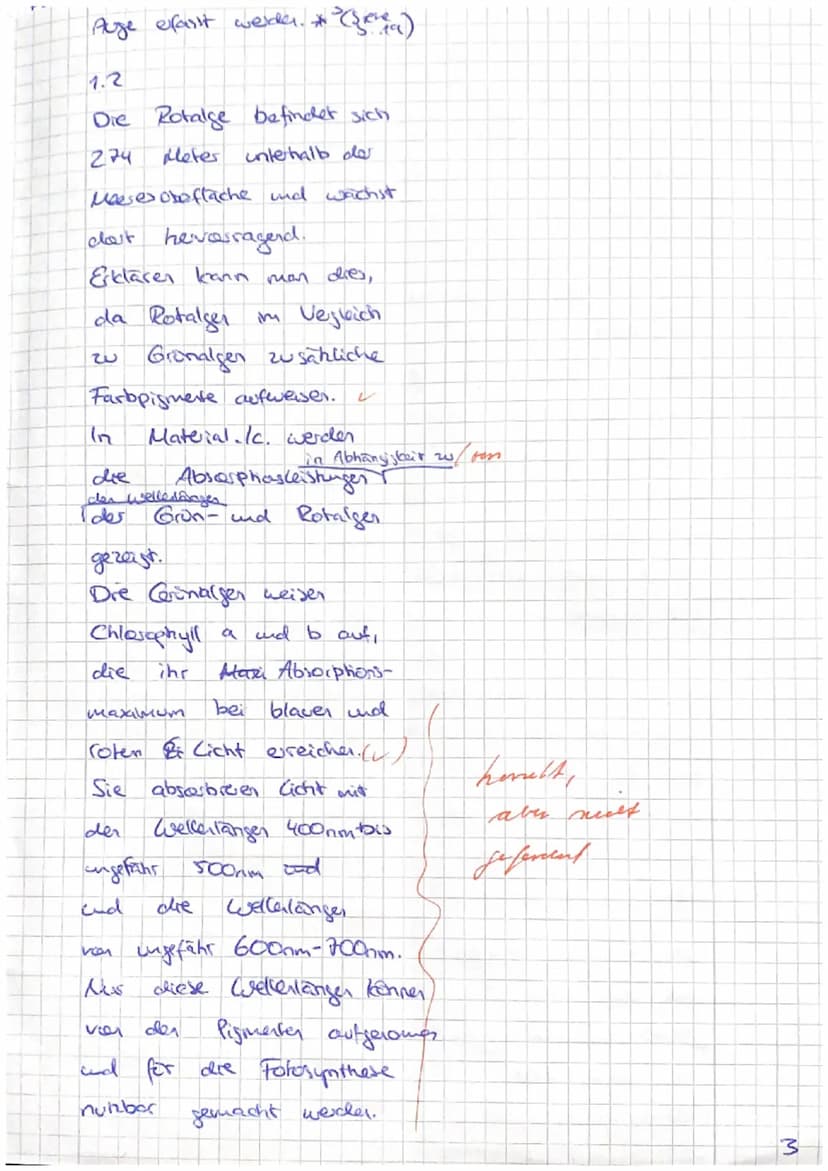 Auge erfasst werden. *³ (siehe S. 1a)
1.2
Die Rotalge befindet sich
274 Meter unterhalb der
Meeresoberfläche und wächst
dort hervorragend.
Erklären kann man dies,
da Rotalgen im Vergleich
zu Grünalgen zusätzliche
Farbpigmente aufweisen. ✓
In Material 1c. werden
in Abhängigkeit zu / von
die Absorptionsleistungen
den Wellenlängen
der Grün- und Rotalgen
gezeigt.
Die Grünalgen weisen
Chlorophyll a und b auf,
die ihr Maxi Absorptions-
maximum bei blauen und
roten Licht erreichen. (✓)
Sie absorbieren Licht mit
den Wellenlängen 400nm bis
ungefähr 500nm und
und die Wellenlängen
von ungefähr 600nm-700nm.
Nur diese Wellenlängen können
von den Pigmenten aufgenomen
und für die Fotosynthese
nutzbar gemacht werden.
korrekt,
aber nicht
gefordert
3